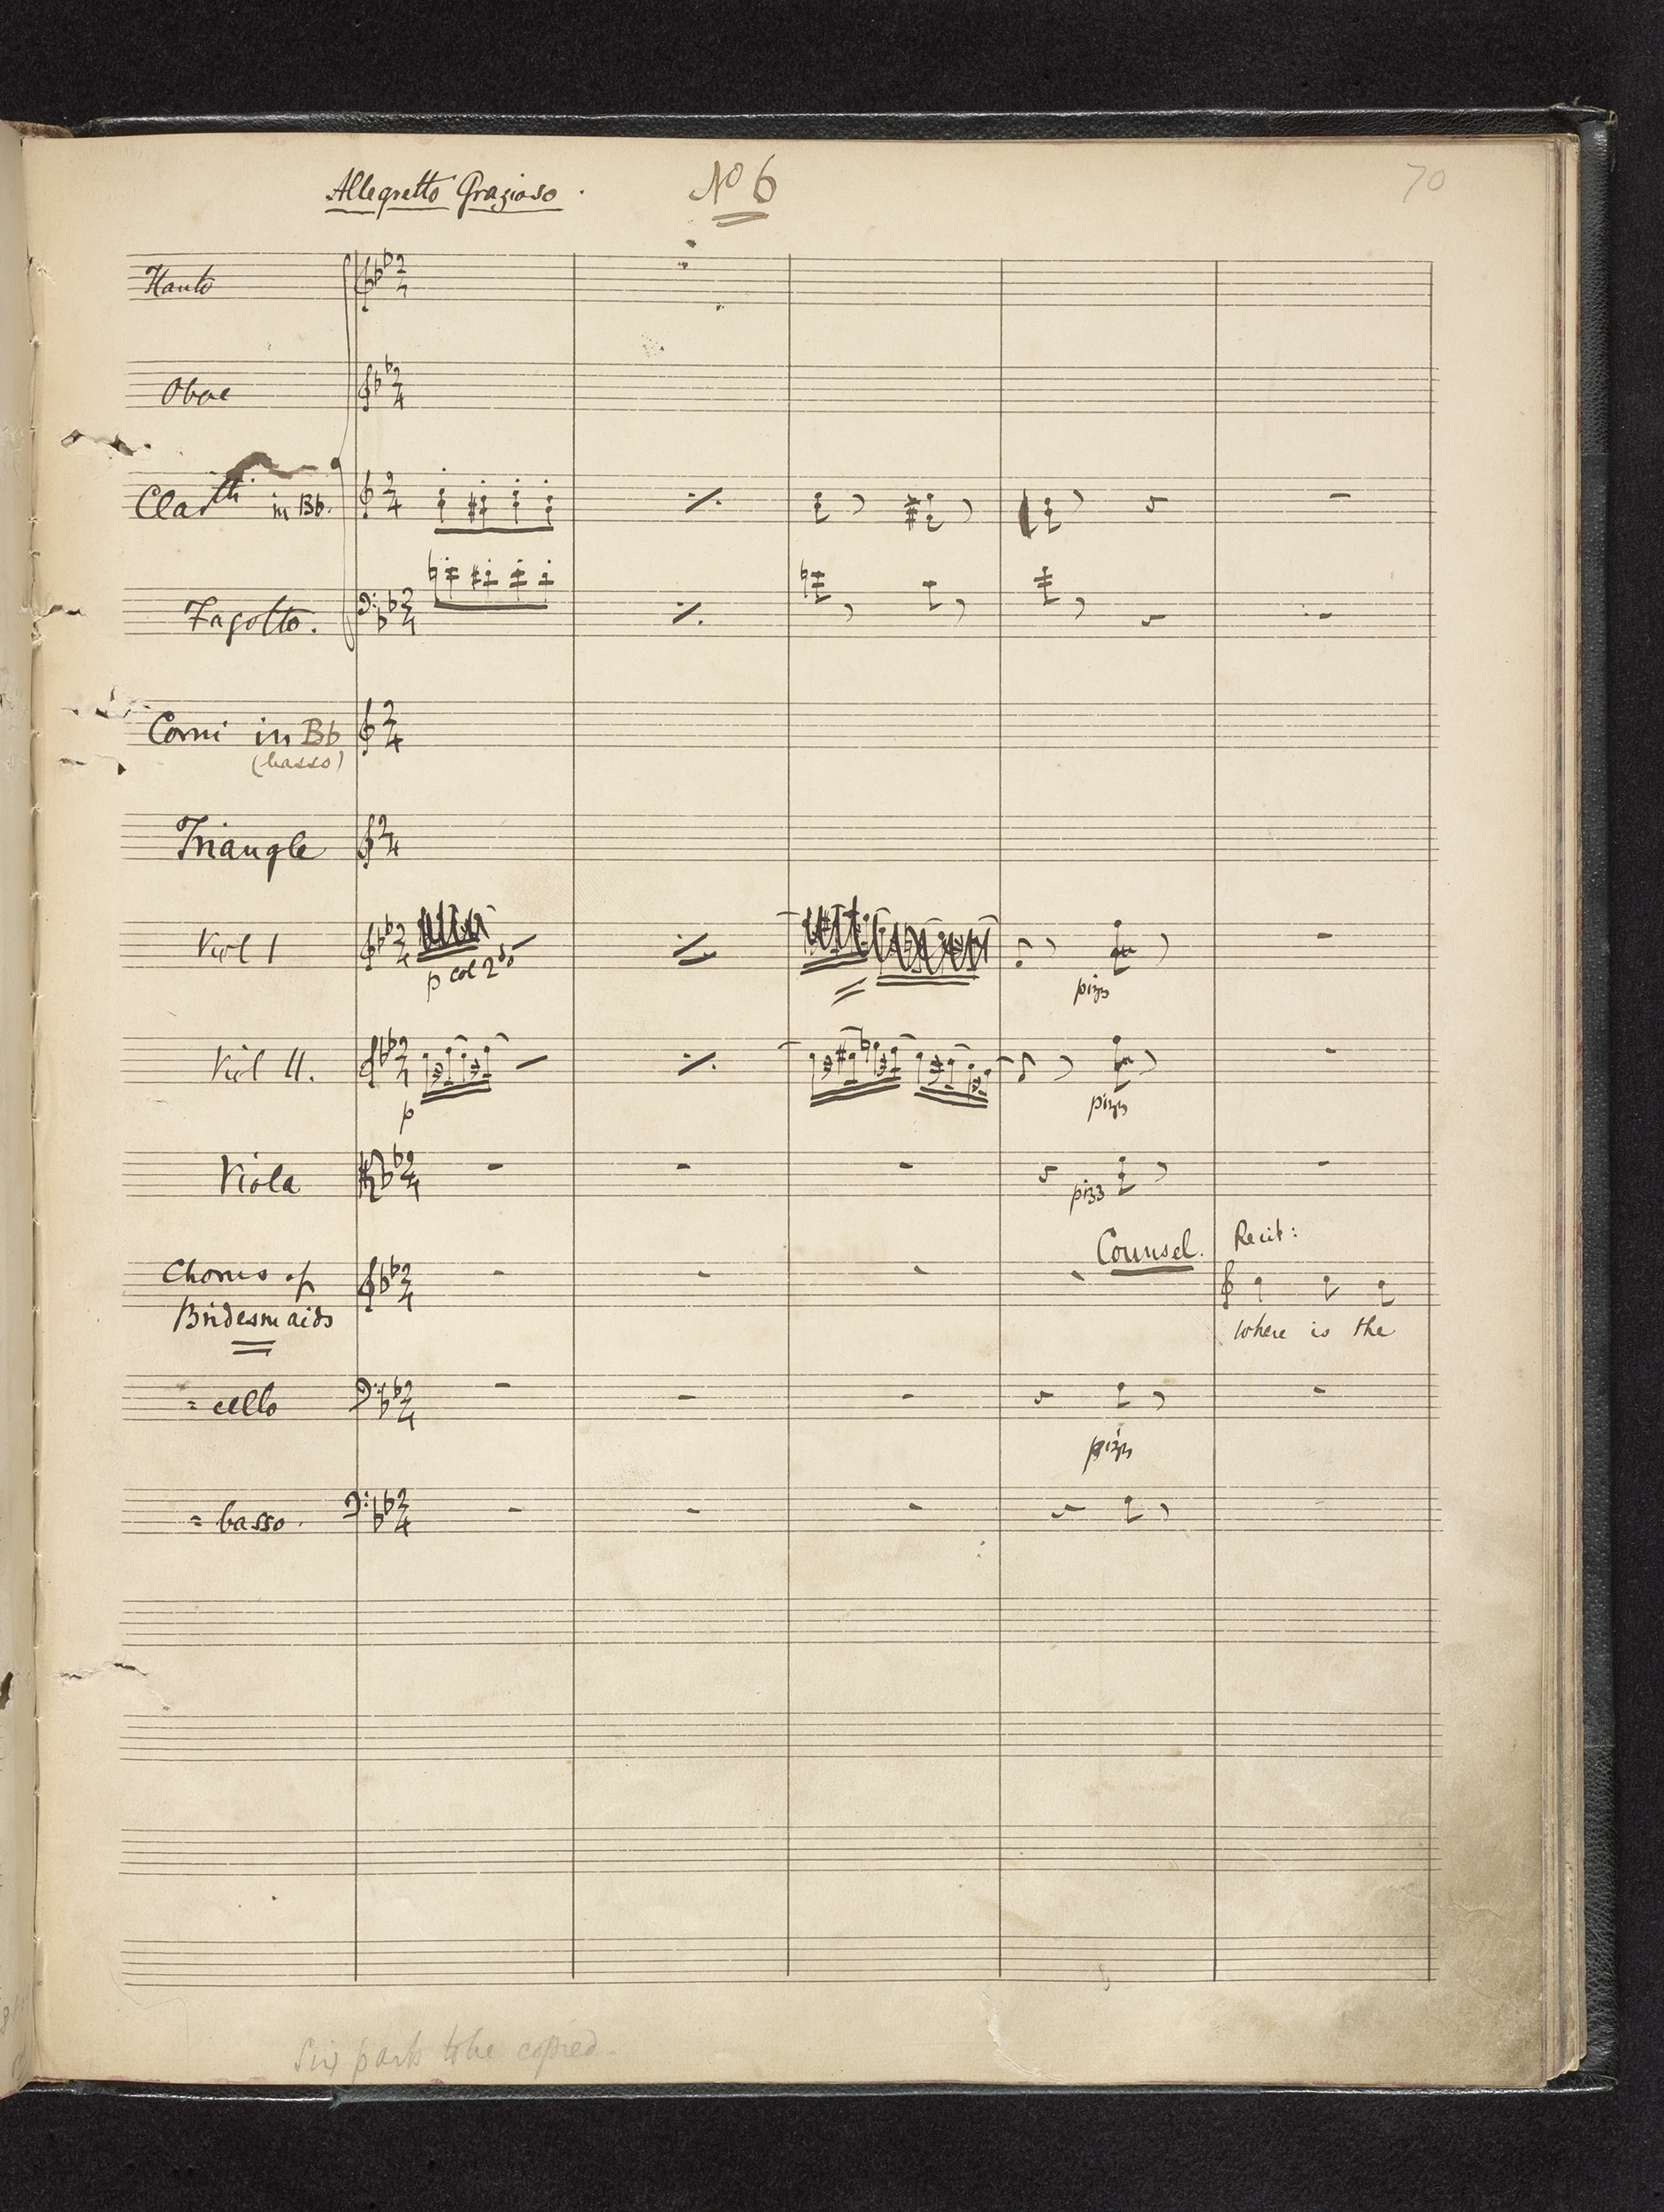 Allegretto Grazioso.
No 6
70
Flauto
Oboe
Clartti in Bb.
Fagotto.
Corni in Bb
(basso)
Triangle
Viol I
p col 2do
pizz
Viol II.
p
pizz
Viola
pizz
Counsel. Recit:
Chorus of
Bridesmaids
Where is the
= cello
pizz
= basso.
Six parts to be copied.